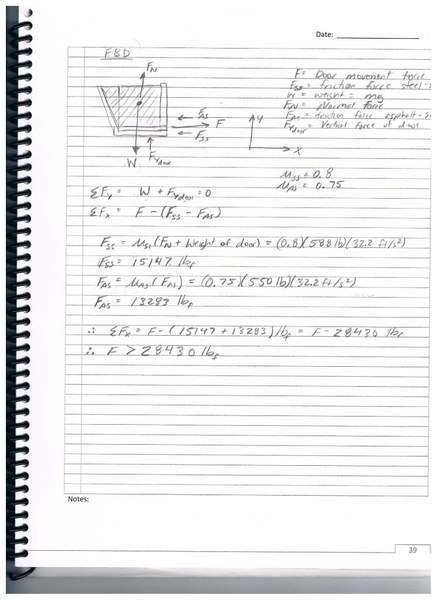 Date:
FBD
F_N
F_AS
F
F_SS
F_Ydoor
W
y
x
F = Door movement force
F_SS = friction force steel-
W = weight = mg
F_N = Normal Force
F_AS = friction force asphalt-
F_Ydoor = Vertical force of door
μ_SS = 0.8
μ_AS = 0.75
ΣF_Y = W + F_Ydoor = 0
ΣF_x = F - (F_SS - F_AS)
F_SS = μ_SS (F_N + Weight of door) = (0.8)(588 lb)(32.2 ft/s²)
F_SS = 15147 lb_f
F_AS = μ_AS (F_N) = (0.75)(550 lb)(32.2 ft/s²)
F_AS = 13283 lb_f
∴ ΣF_x = F - (15147 + 13283) lb_f = F - 28430 lb_f
∴ F > 28430 lb_f
Notes:
39